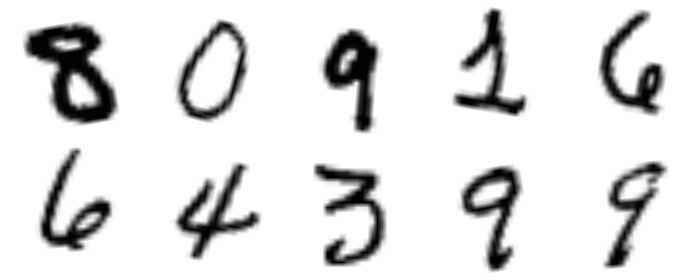 8 0 9 1 6
6 4 3 9 9